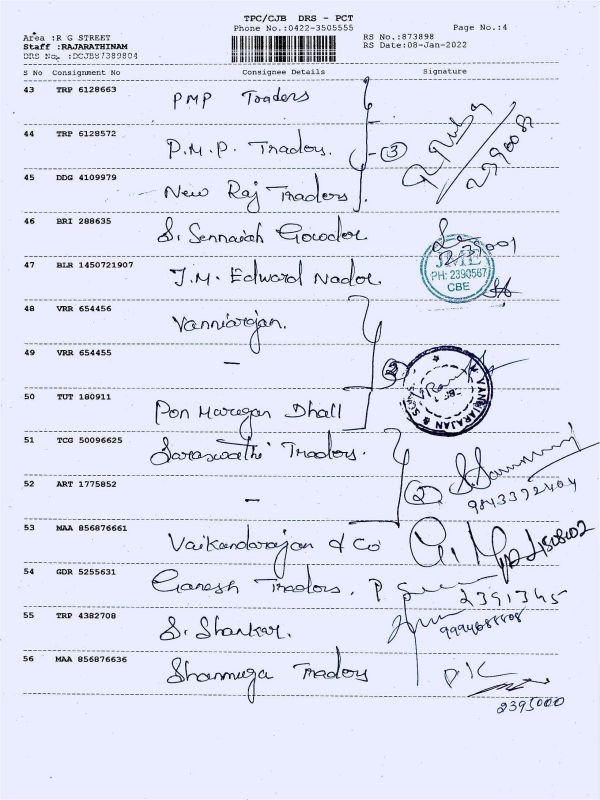 TPC/CJB DRS - PCT
Phone No.:0422-3505555
Page No.:4
Area :R G STREET
Staff :RAJARATHINAM
DRS No. :DCJB87389804
RS No.:873898
RS Date:08-Jan-2022
S No Consignment No Consignee Details Signature
43 TRP 6128663 PMP Traders
44 TRP 6128572 P.M.P. Traders. 3
45 DDG 4109979 New Raj Traders
46 BRI 288635 S. Sennaiah Gowder
47 BLR 1450721907 J.M. Edward Nador
JME
PH: 2390567
CBE
48 VRR 654456 Vanniarajan.
49 VRR 654455 -
VANNIARAJAN &
50 TUT 180911 Pon Maragan Dhall
51 TCG 50096625 Saraswathi Traders.
52 ART 1775852 - 2
9843392404
53 MAA 856876661 Vaikandarajan & Co
54 GDR 5255631 Ganesh Traders.
2391345
55 TRP 4382708 S. Shankar.
56 MAA 856876636 Shanmuga Traders
2395000